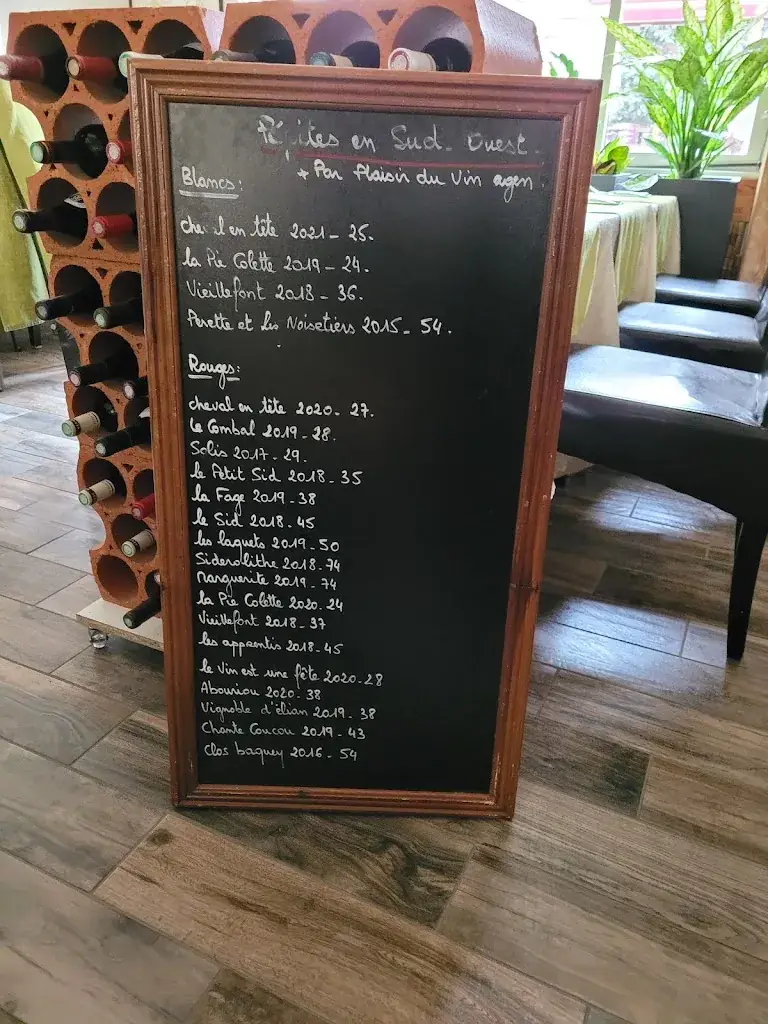 Pépites en Sud-Ouest
+ Par Plaisir du Vin agen
Blancs:
cheval en tête 2021 - 25.
la Pie Colette 2019 - 24.
Vieillefont 2018 - 36.
Perette et les Noisetiers 2015 - 54.
Rouges:
cheval en tête 2020 - 27.
le Combal 2019 - 28.
Solis 2017 - 29.
le Petit Sid 2018 - 35
la Fage 2019 - 38
le Sid 2018 - 45
les laquets 2019 - 50
Siderolithe 2018 - 74
Marguerite 2019 - 74
la Pie Colette 2020 - 24
Vieillefont 2018 - 37
les apprentis 2018 - 45
le Vin est une fête 2020 - 28
Abouriou 2020 - 38
Vignoble d'élian 2019 - 38
Chante Coucou 2019 - 43
Clos baquey 2016 - 54